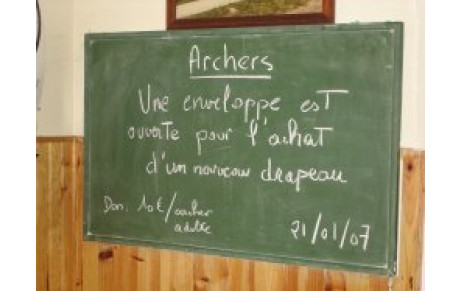 Archers
Une enveloppe est
ouverte pour l'achat
d'un nouveau drapeau
Don: 10€/archer
adulte
21/01/07